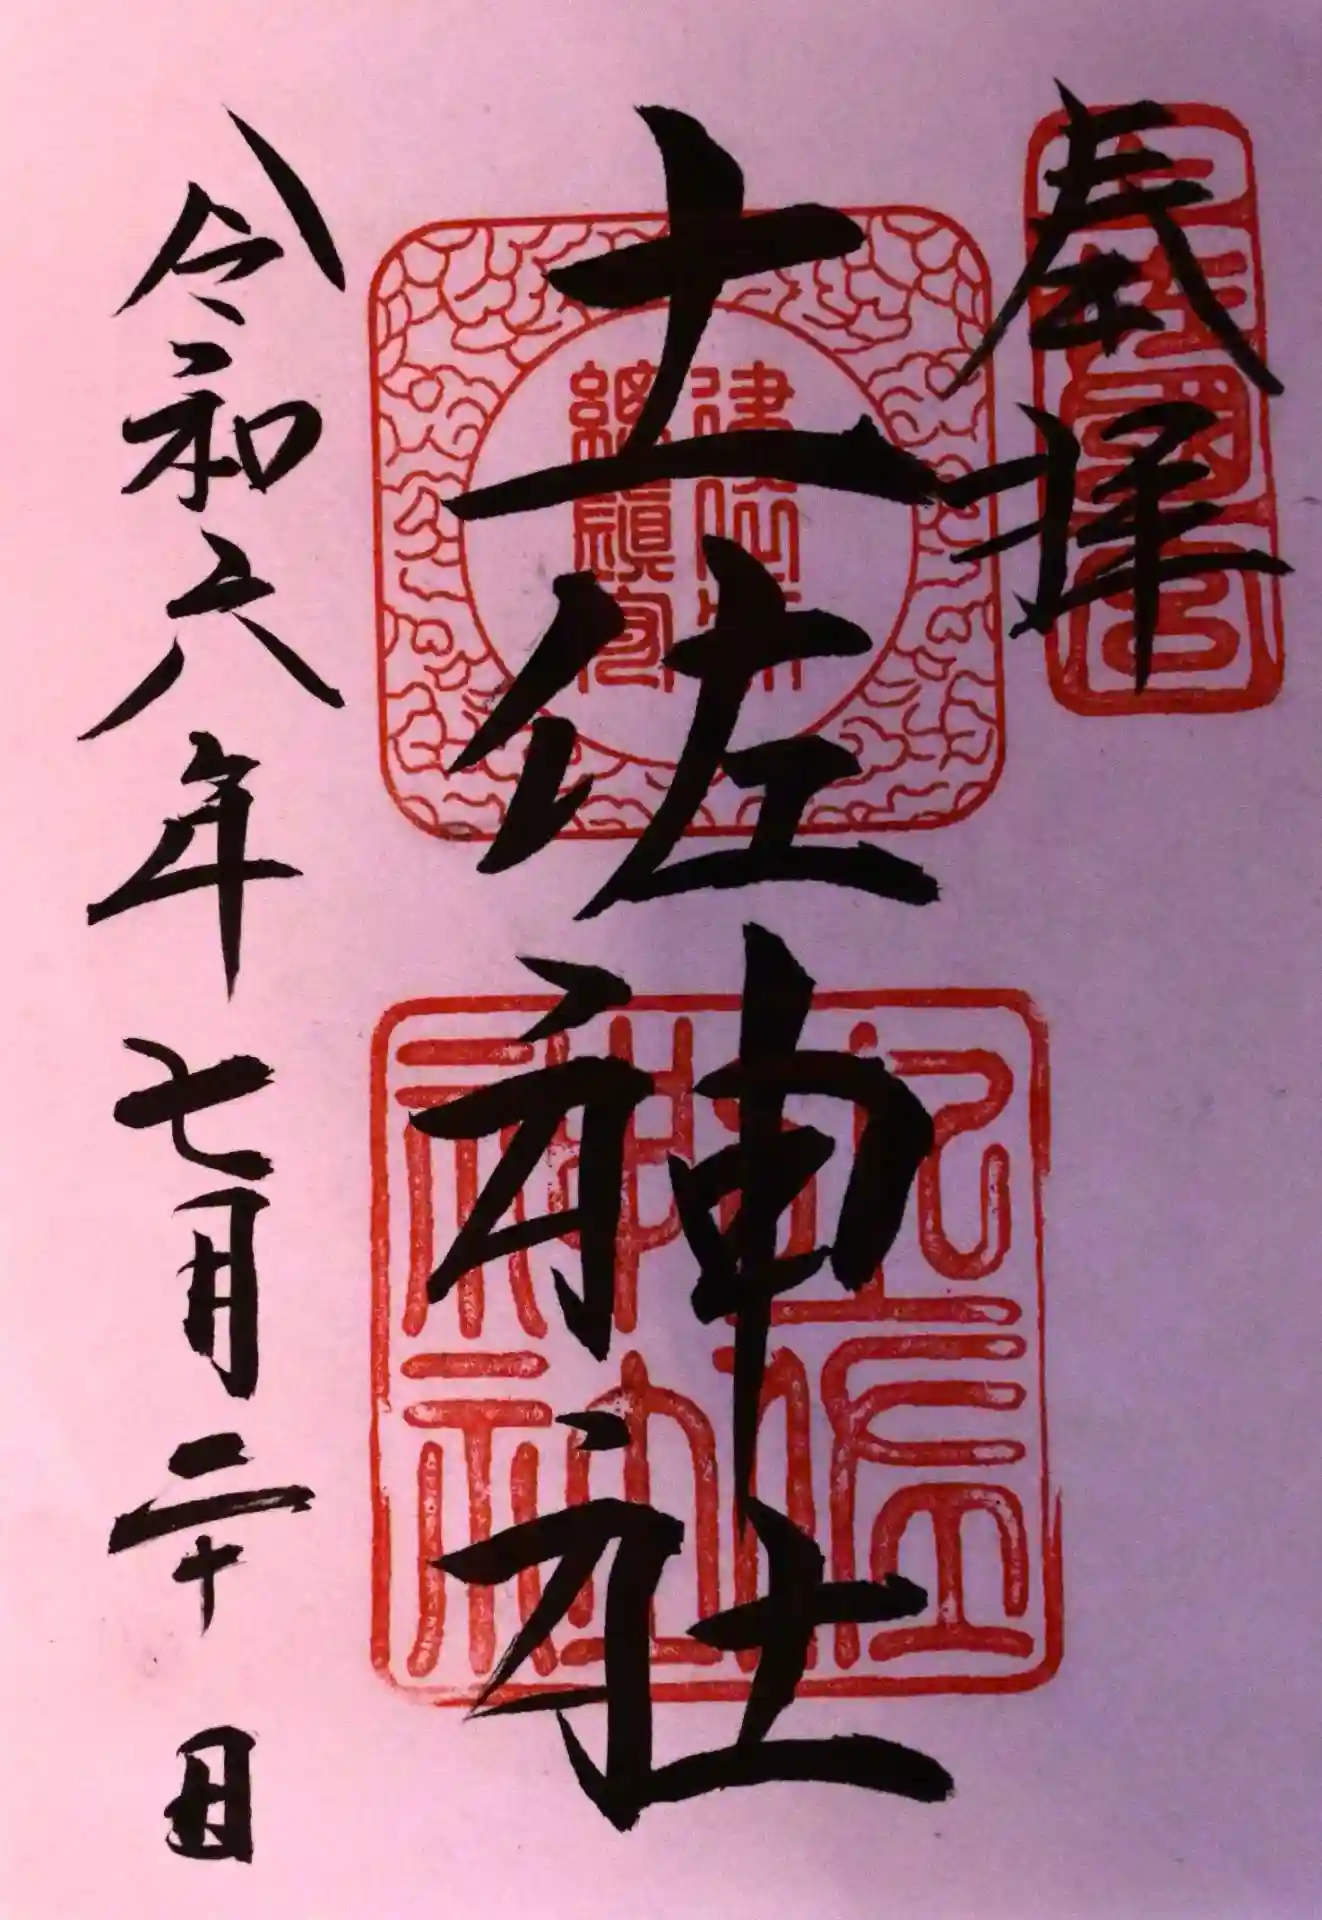 奉拝
土佐國一宮
土佐神社
土佐神社
令和六年七月二十日